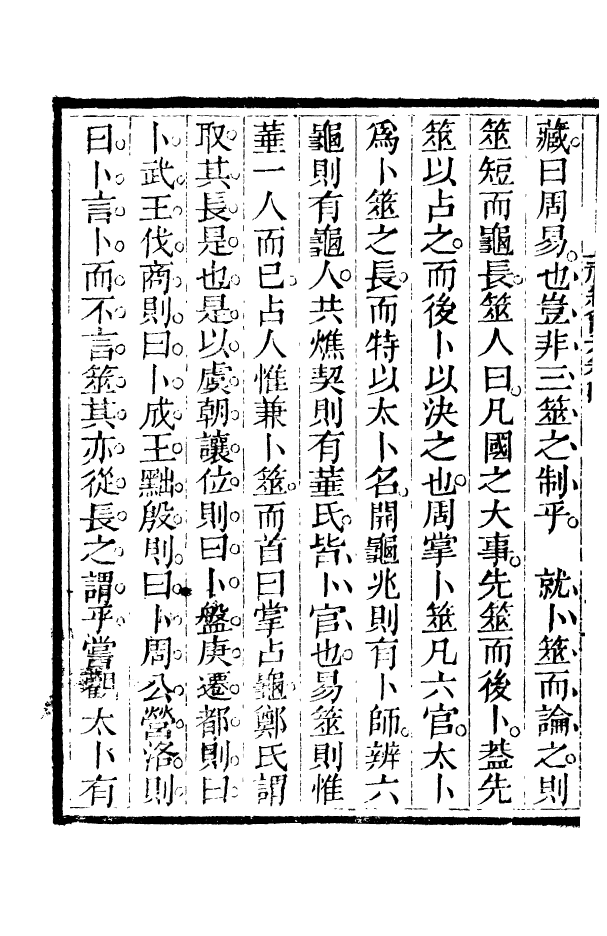 藏曰周易也豈非三筮之制乎　就卜筮而論之則
筮短而龜長筮人曰凡國之大事先筮而後卜葢先
筮以占之而後卜以決之也周掌卜筮凡六官太卜
爲卜筮之長而特以太卜名開龜兆則有卜師辨六
龜則有龜人共燋契則有菙氏皆卜官也易筮則惟
華一人而已占人惟兼卜筮而首曰掌占龜鄭氏謂
取其長是也是以虞朝讓位則曰卜盤庚遷都則曰
卜武王伐商則曰卜成王黜殷則曰卜周公營洛則
曰卜言卜而不言筮其亦從長之謂乎嘗觀太卜有